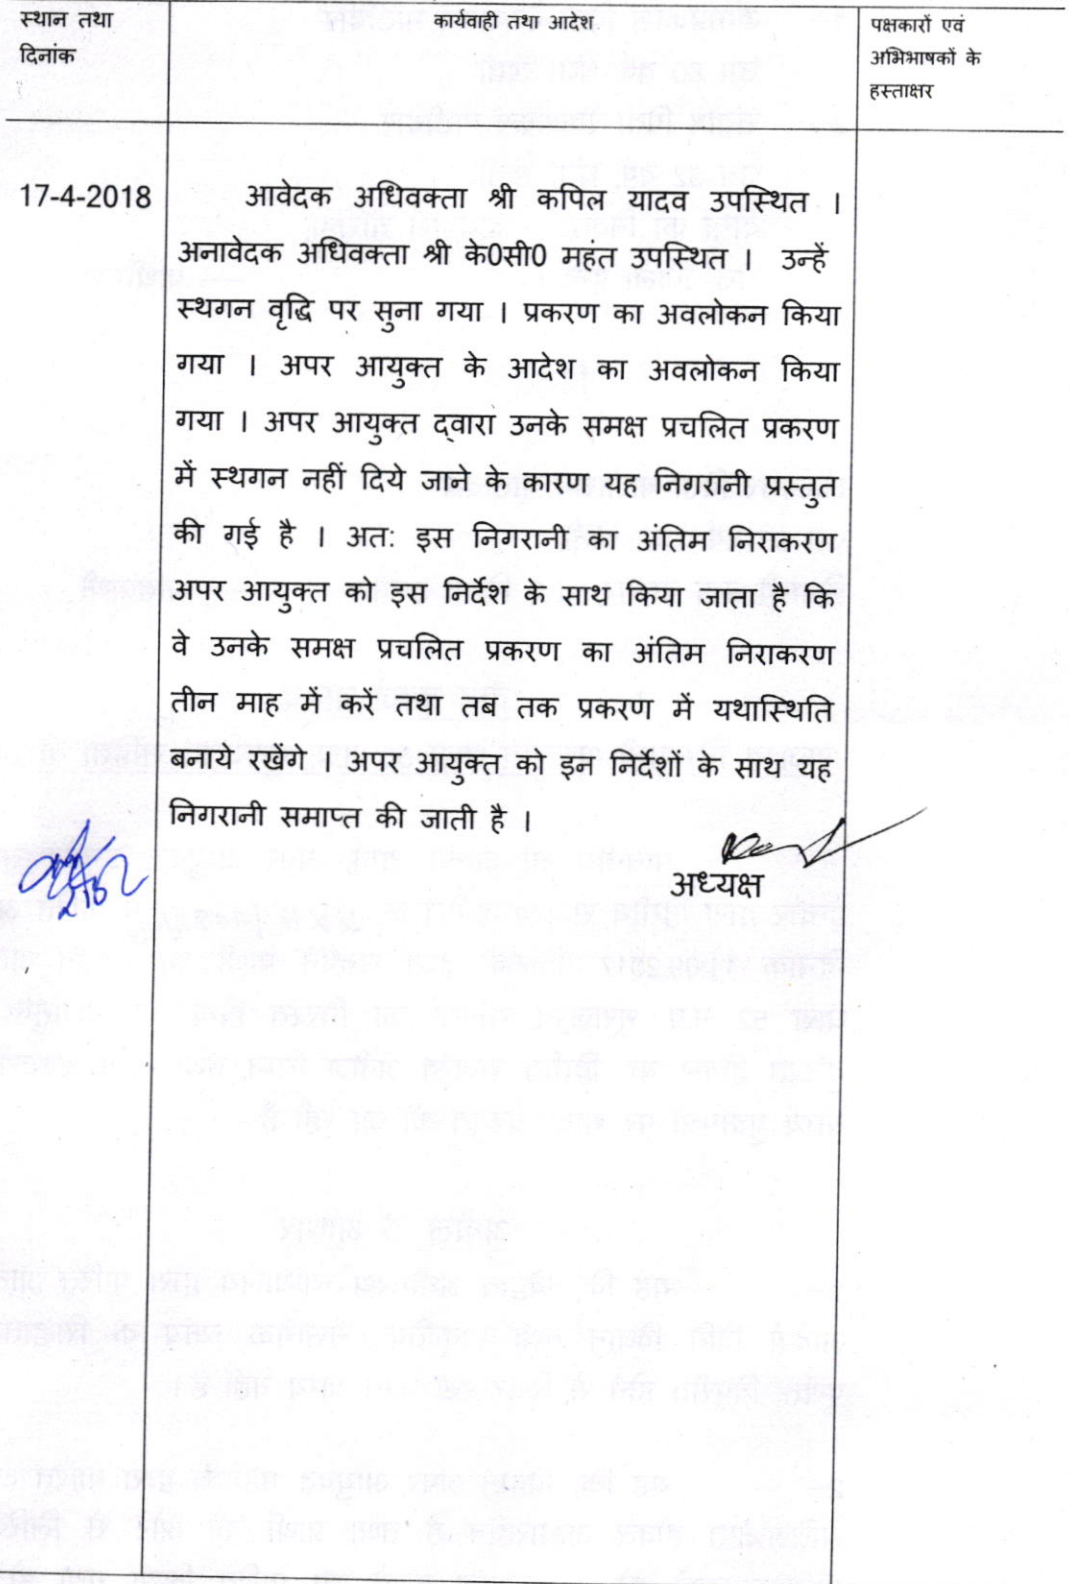 स्थान तथा
दिनांक
कार्यवाही तथा आदेश
पक्षकारों एवं
अभिभाषकों के
हस्ताक्षर
17-4-2018
आवेदक अधिवक्ता श्री कपिल यादव उपस्थित ।
अनावेदक अधिवक्ता श्री के0सी0 महंत उपस्थित । उन्हें
स्थगन वृद्धि पर सुना गया । प्रकरण का अवलोकन किया
गया । अपर आयुक्त के आदेश का अवलोकन किया
गया । अपर आयुक्त द्वारा उनके समक्ष प्रचलित प्रकरण
में स्थगन नहीं दिये जाने के कारण यह निगरानी प्रस्तुत
की गई है । अत: इस निगरानी का अंतिम निराकरण
अपर आयुक्त को इस निर्देश के साथ किया जाता है कि
वे उनके समक्ष प्रचलित प्रकरण का अंतिम निराकरण
तीन माह में करें तथा तब तक प्रकरण में यथास्थिति
बनाये रखेंगे । अपर आयुक्त को इन निर्देशों के साथ यह
निगरानी समाप्त की जाती है ।
अध्यक्ष